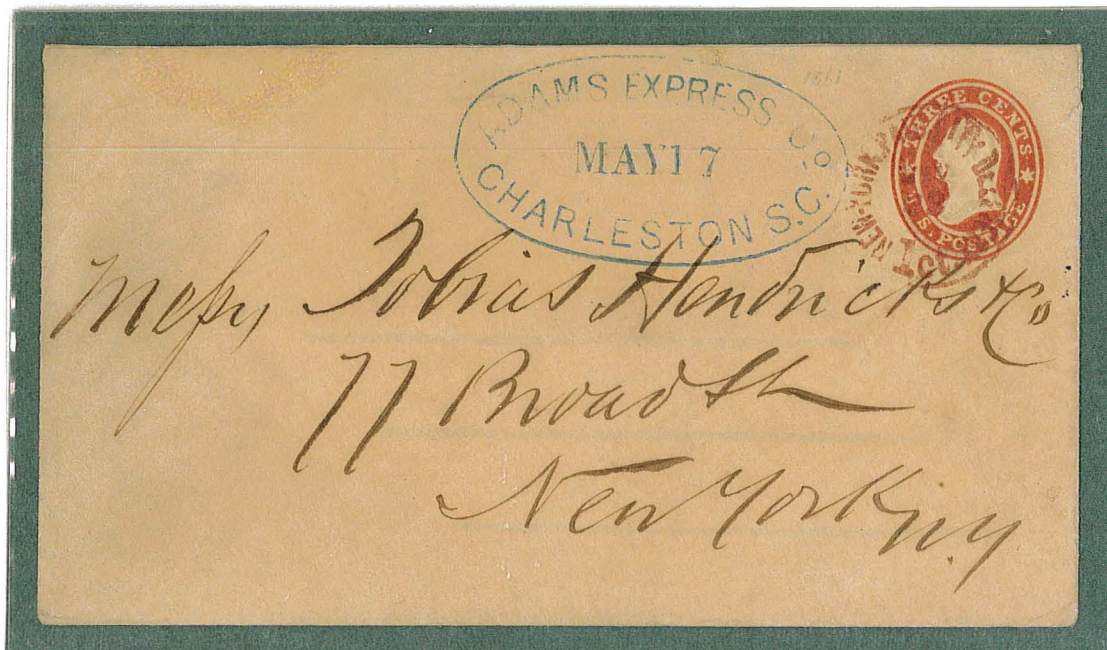 ADAMS EXPRESS CO.
MAY 17
CHARLESTON S.C.
1861
THREE CENTS
U.S. POSTAGE
NEW-YORK
1 ct
Messrs Tobias Hendricks & Co
77 Broad St
New York N.Y